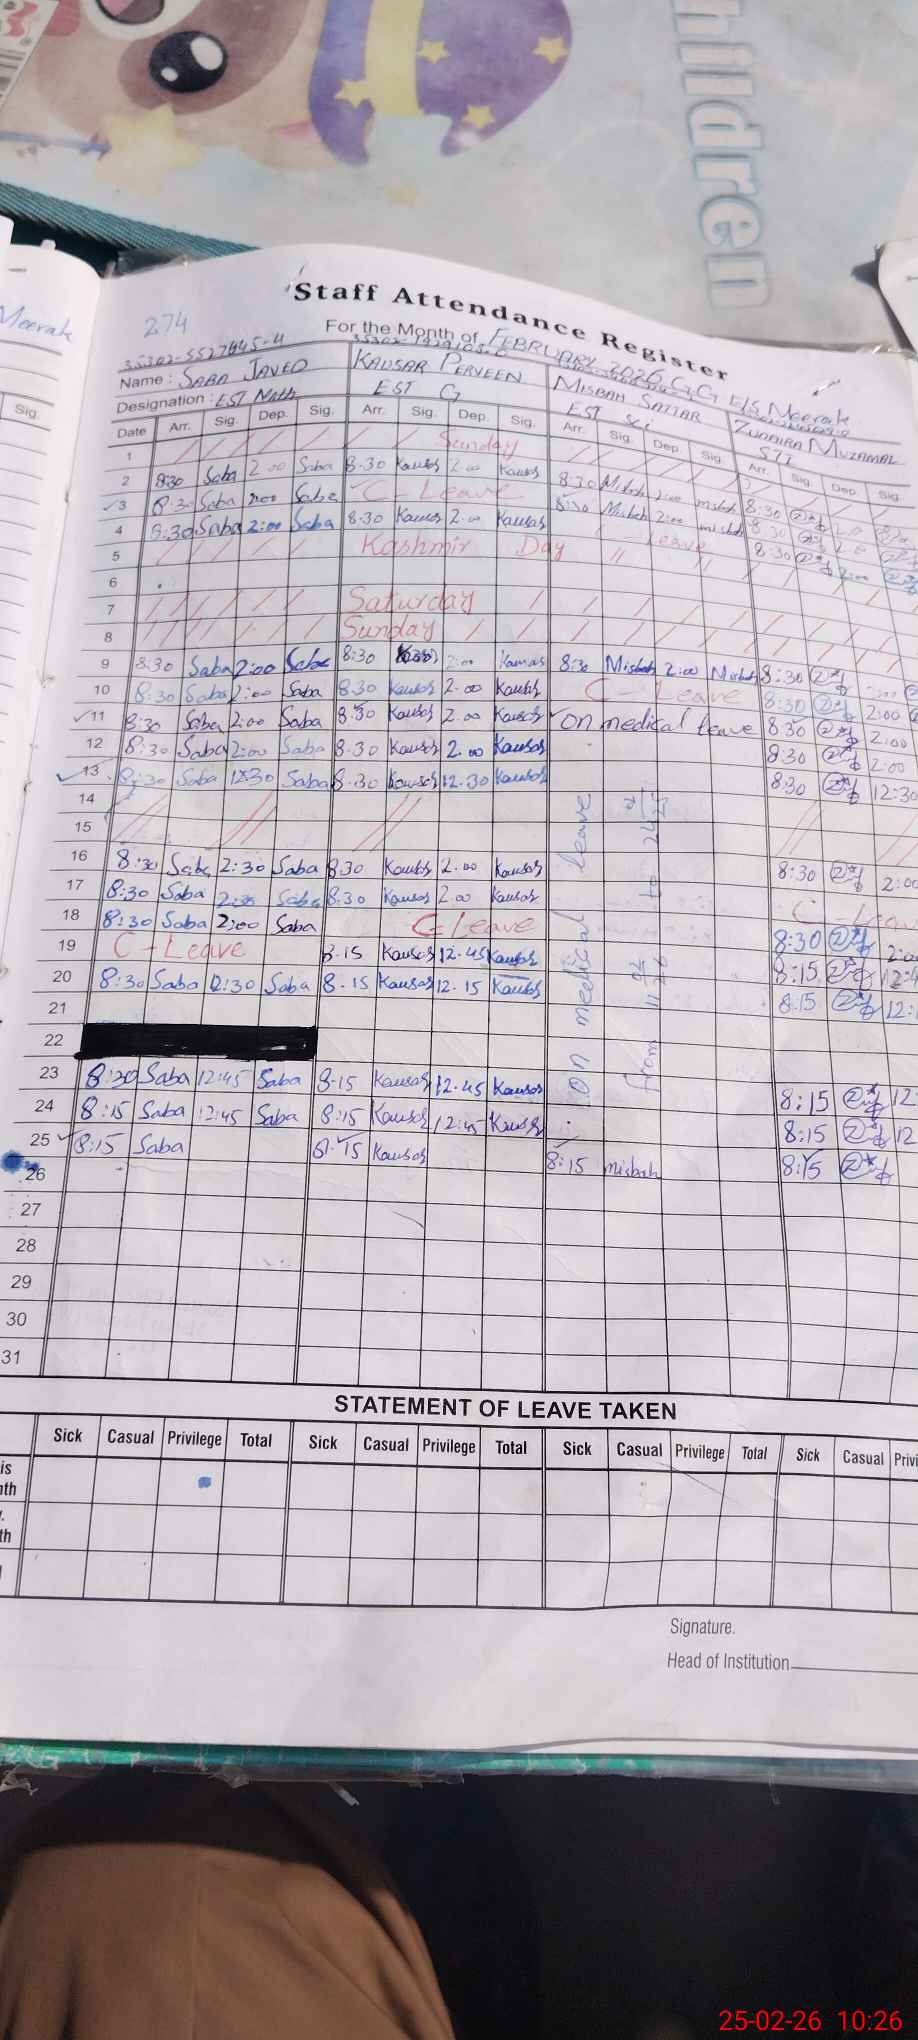 hildren
Meerak
Sig.
274
Staff Attendance Register
For the Month of FEBRUARY 2026 GG E/S Meerak
Name: SABA JAVED KAUSAR PERVEEN MISBAH SATTAR ZUNAIRA MUZAMAL
Designation: EST Math EST G EST Sci STI
Date Arr. Sig. Dep. Sig. Arr. Sig. Dep. Sig. Arr. Sig. Dep. Sig. Arr. Sig. Dep. Sig.
1 Sunday
2 8:30 Saba 2:00 Saba 8.30 Kausar 2.00 Kausar 8:30 Misbah 2:00 misbah 8:30
3 8:30 Saba 2:00 Saba C-Leave 8:30 Misbah 2:00 misbah 8:30
4 8:30 Saba 2:00 Saba 8.30 Kausar 2.00 Kausar Leave 8:30 2:00
5 Kashmir Day
6
7 Saturday
8 Sunday
9 8:30 Saba 2:00 Saba 8:30 2:00 Kausar 8:30 Misbah 2:00 Misbah 8:30
10 8:30 Saba 2:00 Saba 8.30 Kausar 2.00 Kausar C-Leave 8:30 2:00
11 8:30 Saba 2:00 Saba 8.30 Kausar 2.00 Kausar on medical leave 8:30 2:00
12 8:30 Saba 2:00 Saba 8.30 Kausar 2.00 Kausar 8:30 2:00
13 8:30 Saba 12:30 Saba 8.30 Kausar 12.30 Kausar 8:30 12:30
14
15
16 8:30 Saba 2:30 Saba 8.30 Kausar 2.00 Kausar 8:30 2:00
17 8:30 Saba 2:00 Saba 8.30 Kausar 2.00 Kausar C-Leave
18 8:30 Saba 2:00 Saba C-Leave 8:30
19 C-Leave 8.15 Kausar 12.45 Kausar 8:15
20 8:30 Saba 12:30 Saba 8.15 Kausar 12.15 Kausar 8:15 12:
21
22
on medical leave
from 11 to 24
23 8:30 Saba 12:45 Saba 8.15 Kausar 12.45 Kausar 8:15 12
24 8:15 Saba 12:45 Saba 8:15 Kausar 12:45 Kausar 8:15 12
25 8:15 Saba 8:15 Kausar 8:15 misbah 8:15
26
27
28
29
30
31
STATEMENT OF LEAVE TAKEN
Sick Casual Privilege Total Sick Casual Privilege Total Sick Casual Privilege Total Sick Casual Privi
is
th
th
Signature.
Head of Institution
25-02-26 10:26